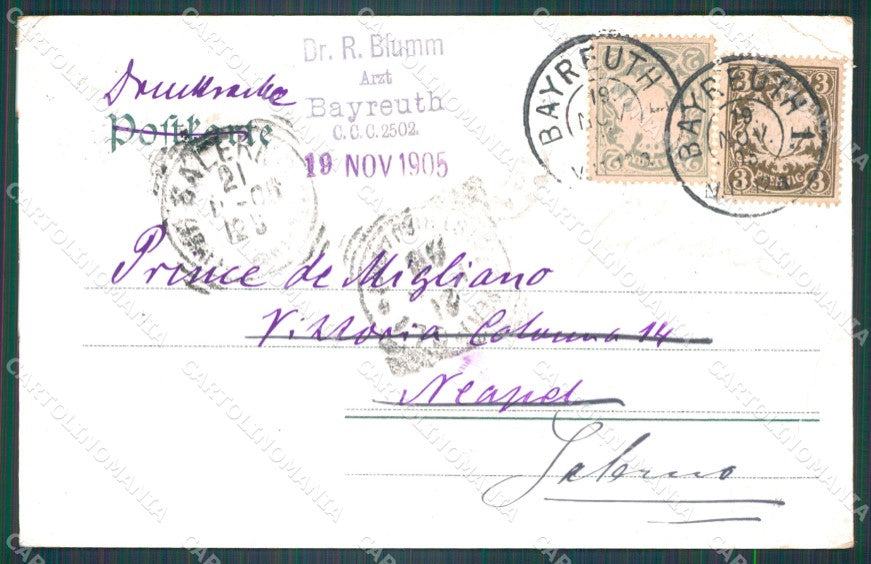 Drucksache
Postkarte
Dr. R. Blumm
Arzt
Bayreuth
C.C.C. 2502.
19 NOV 1905
BAYREUTH 1.
19
NOV
2
BAYREUTH 1.
19
NOV
3 3
3 PFENNIG 3
SALERNO
21
Prince de Migliano
Vittoria Colonna 14
Neapel
Salerno
CARTOLINOMANIA